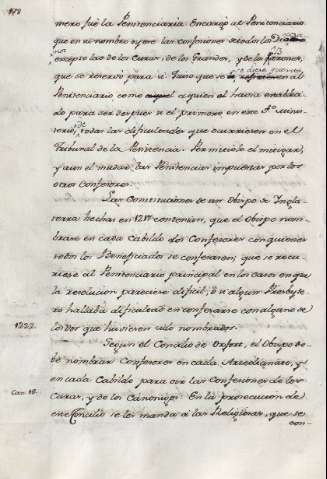 mero fué la Penitenciaria. Encargó al Penitenciario
que en su nombre oyese las confesiones de todos los
excepto las de los Curas, de los Grandes, y de los Barones,
que se reservó para sí
Penitenciario como a quien el havia establecido
do para ser despues de el primero en este Sto. Minis-
terio, todas las dificultades que ocurriesen en el
Tribunal de la Penitencia. Permitiole el mitigar,
y aun el mudar las Penitencias impuestas por los
otros Confesores.
Las Constituciones de un Obispo de Ingla-
terra hechas en 1217 contenian, que el Obispo nom-
brase en cada Cabildo dos Confesores con quienes
todos los Beneficiados se confesaran; que se recu-
riese al Penitenciario principal en los casos en que
la resolucion pareciese dificil, ó si algun Presbyte-
ro hallaba dificultad en confesarse con alguno de
los dos que huviesen sido nombrados.
1222.
Segun el Concilio de Oxfort, el Obispo de-
be nombrar Confesores en cada Arcedianato, y
en cada Cabildo para oir las confesiones de los
Can. 18.
Curas, y de los Canonigos. En la prosecucion de
este Concilio se les manda á las Religiosas, que se
con-